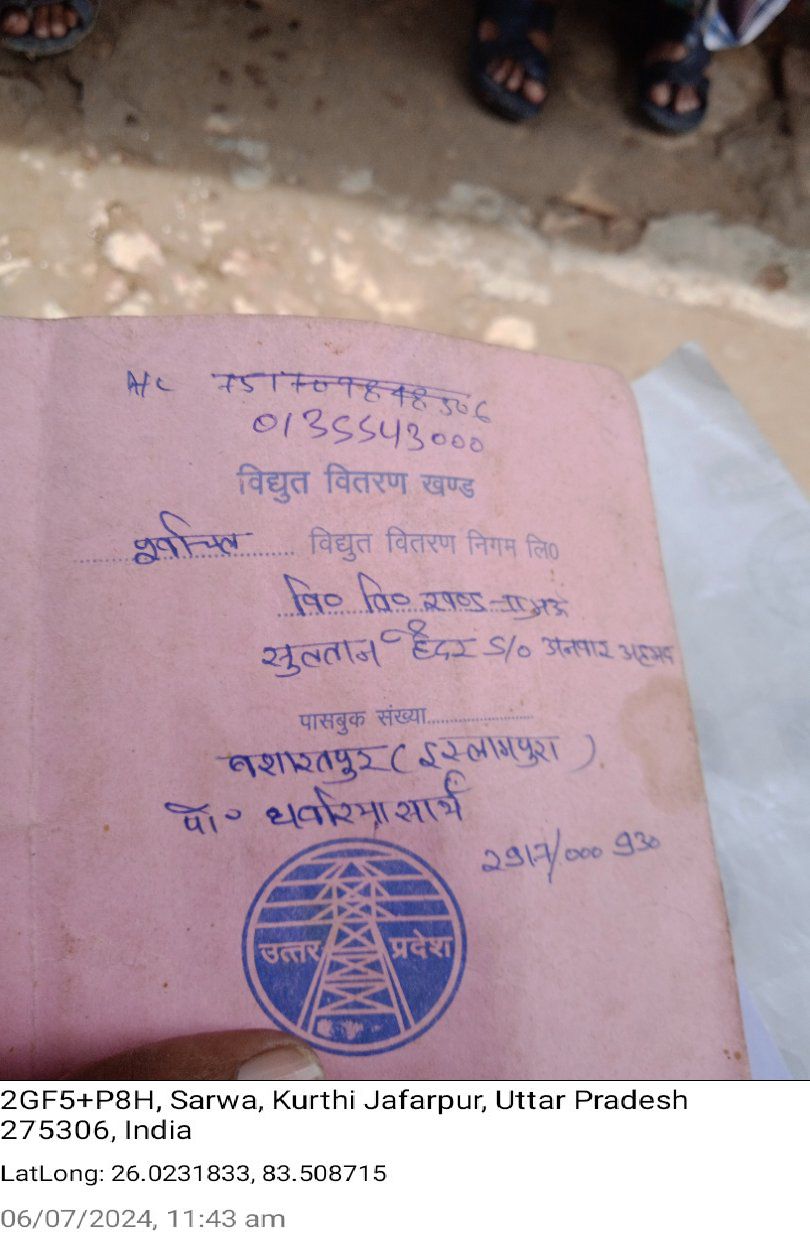 A/C 751709848506
0135543000
विद्युत वितरण खण्ड
पूर्वांचल विद्युत वितरण निगम लि०
वि० वि० खण्ड
सुलतान हैदर S/o अनवार अहमद
पासबुक संख्या
बशारतपुर (इस्लामपुरा)
पो०
2917/000930
उत्तर प्रदेश
2GF5+P8H, Sarwa, Kurthi Jafarpur, Uttar Pradesh
275306, India
LatLong: 26.0231833, 83.508715
06/07/2024, 11:43 am